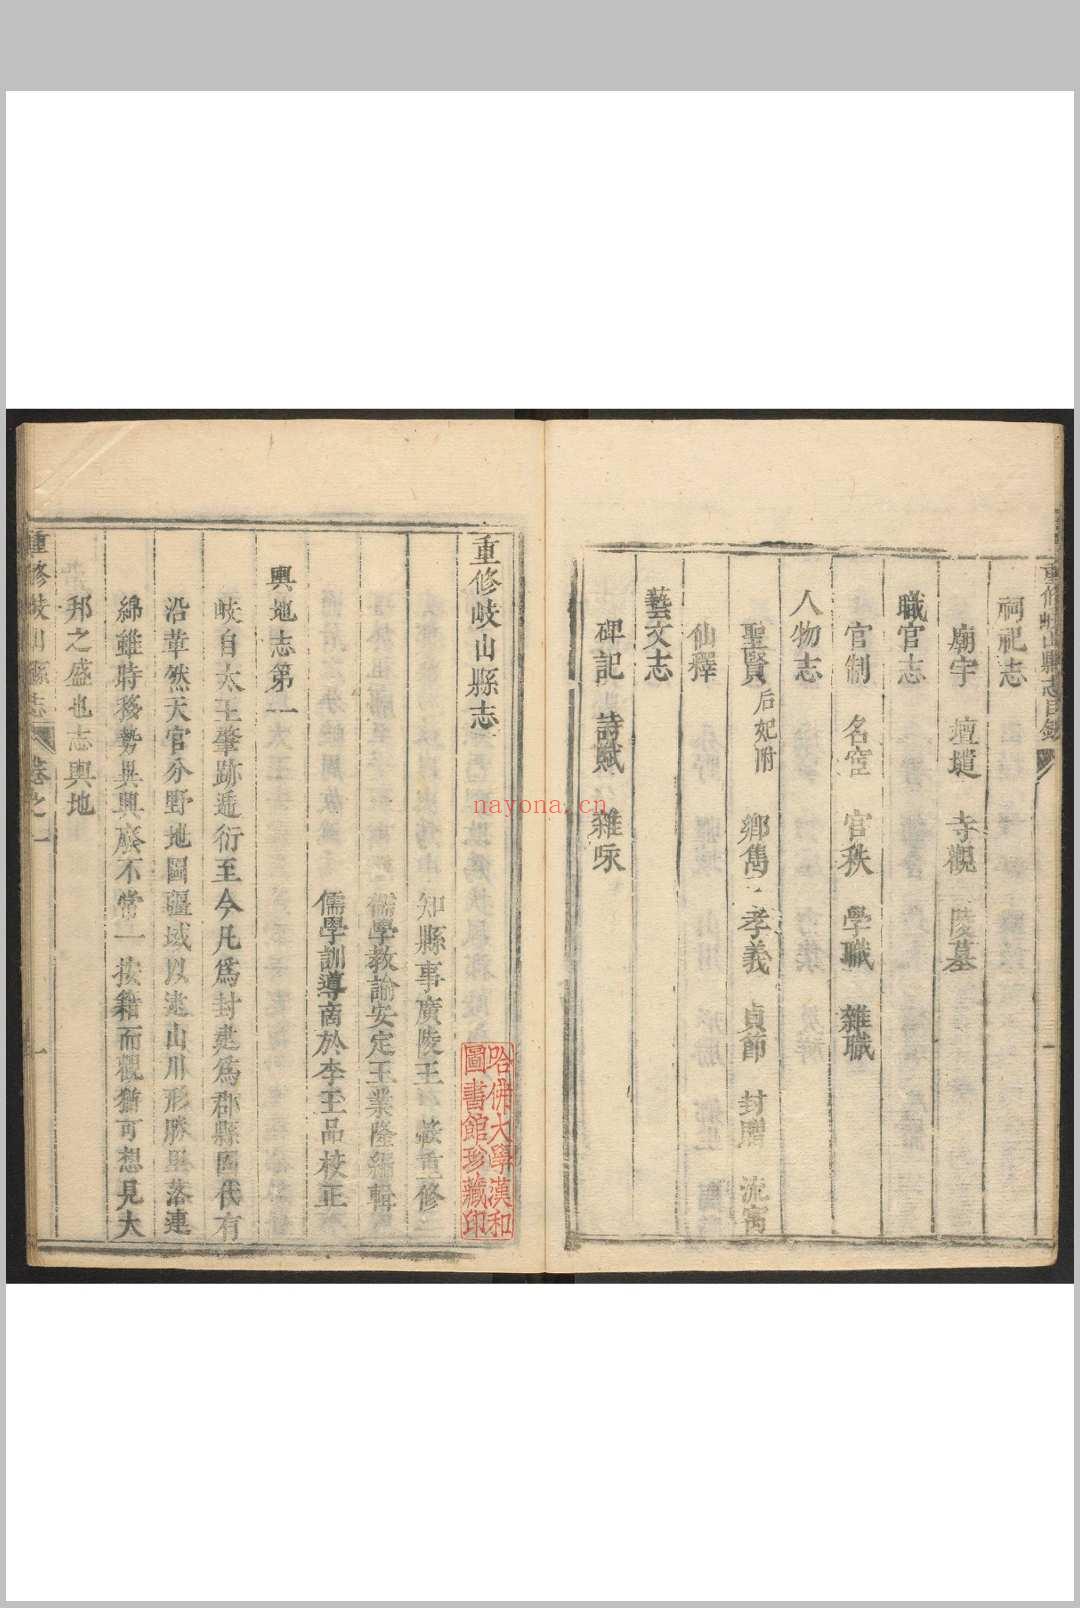 重修岐山縣志目錄
祠祀志
廟宇 壇壝 寺觀 陵墓
職官志
官制 名宦 官秩 學職 雜職
人物志
聖賢后妃附 鄉雋 孝義 貞節 封贈 流寓
仙釋
藝文志
碑記 詩賦 雜咏
重修岐山縣志
知縣事廣陵王 縠重修
儒學教諭安定王業隆編輯
儒學訓導商於李王品校正
輿地志第一
岐自太王肇跡遞衍至今凡爲封建爲郡縣因代有
沿革然天官分野地圖疆域以逮山川形勝里落連
綿雖時移勢異興廢不常一按籍而觀猶可想見大
邦之盛也志輿地
重修岐山縣志 卷之一 一
哈佛大學漢和
圖書館珍藏印
nayona.cn